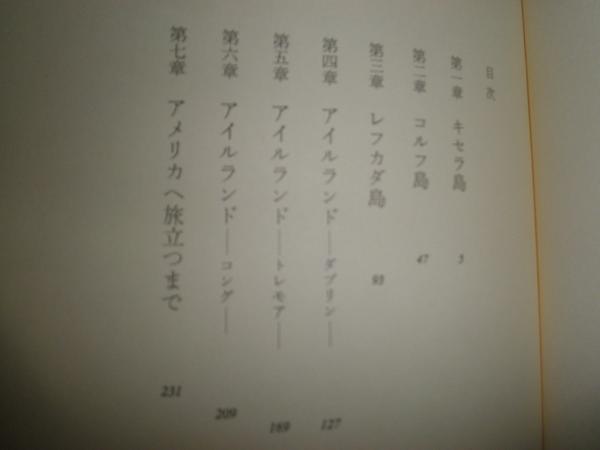 目次
第一章 キセラ島 5
第二章 コルフ島 47
第三章 レフカダ島 93
第四章 アイルランド――ダブリン―― 127
第五章 アイルランド――トレモア―― 169
第六章 アイルランド――コング―― 209
第七章 アメリカへ旅立つまで 231